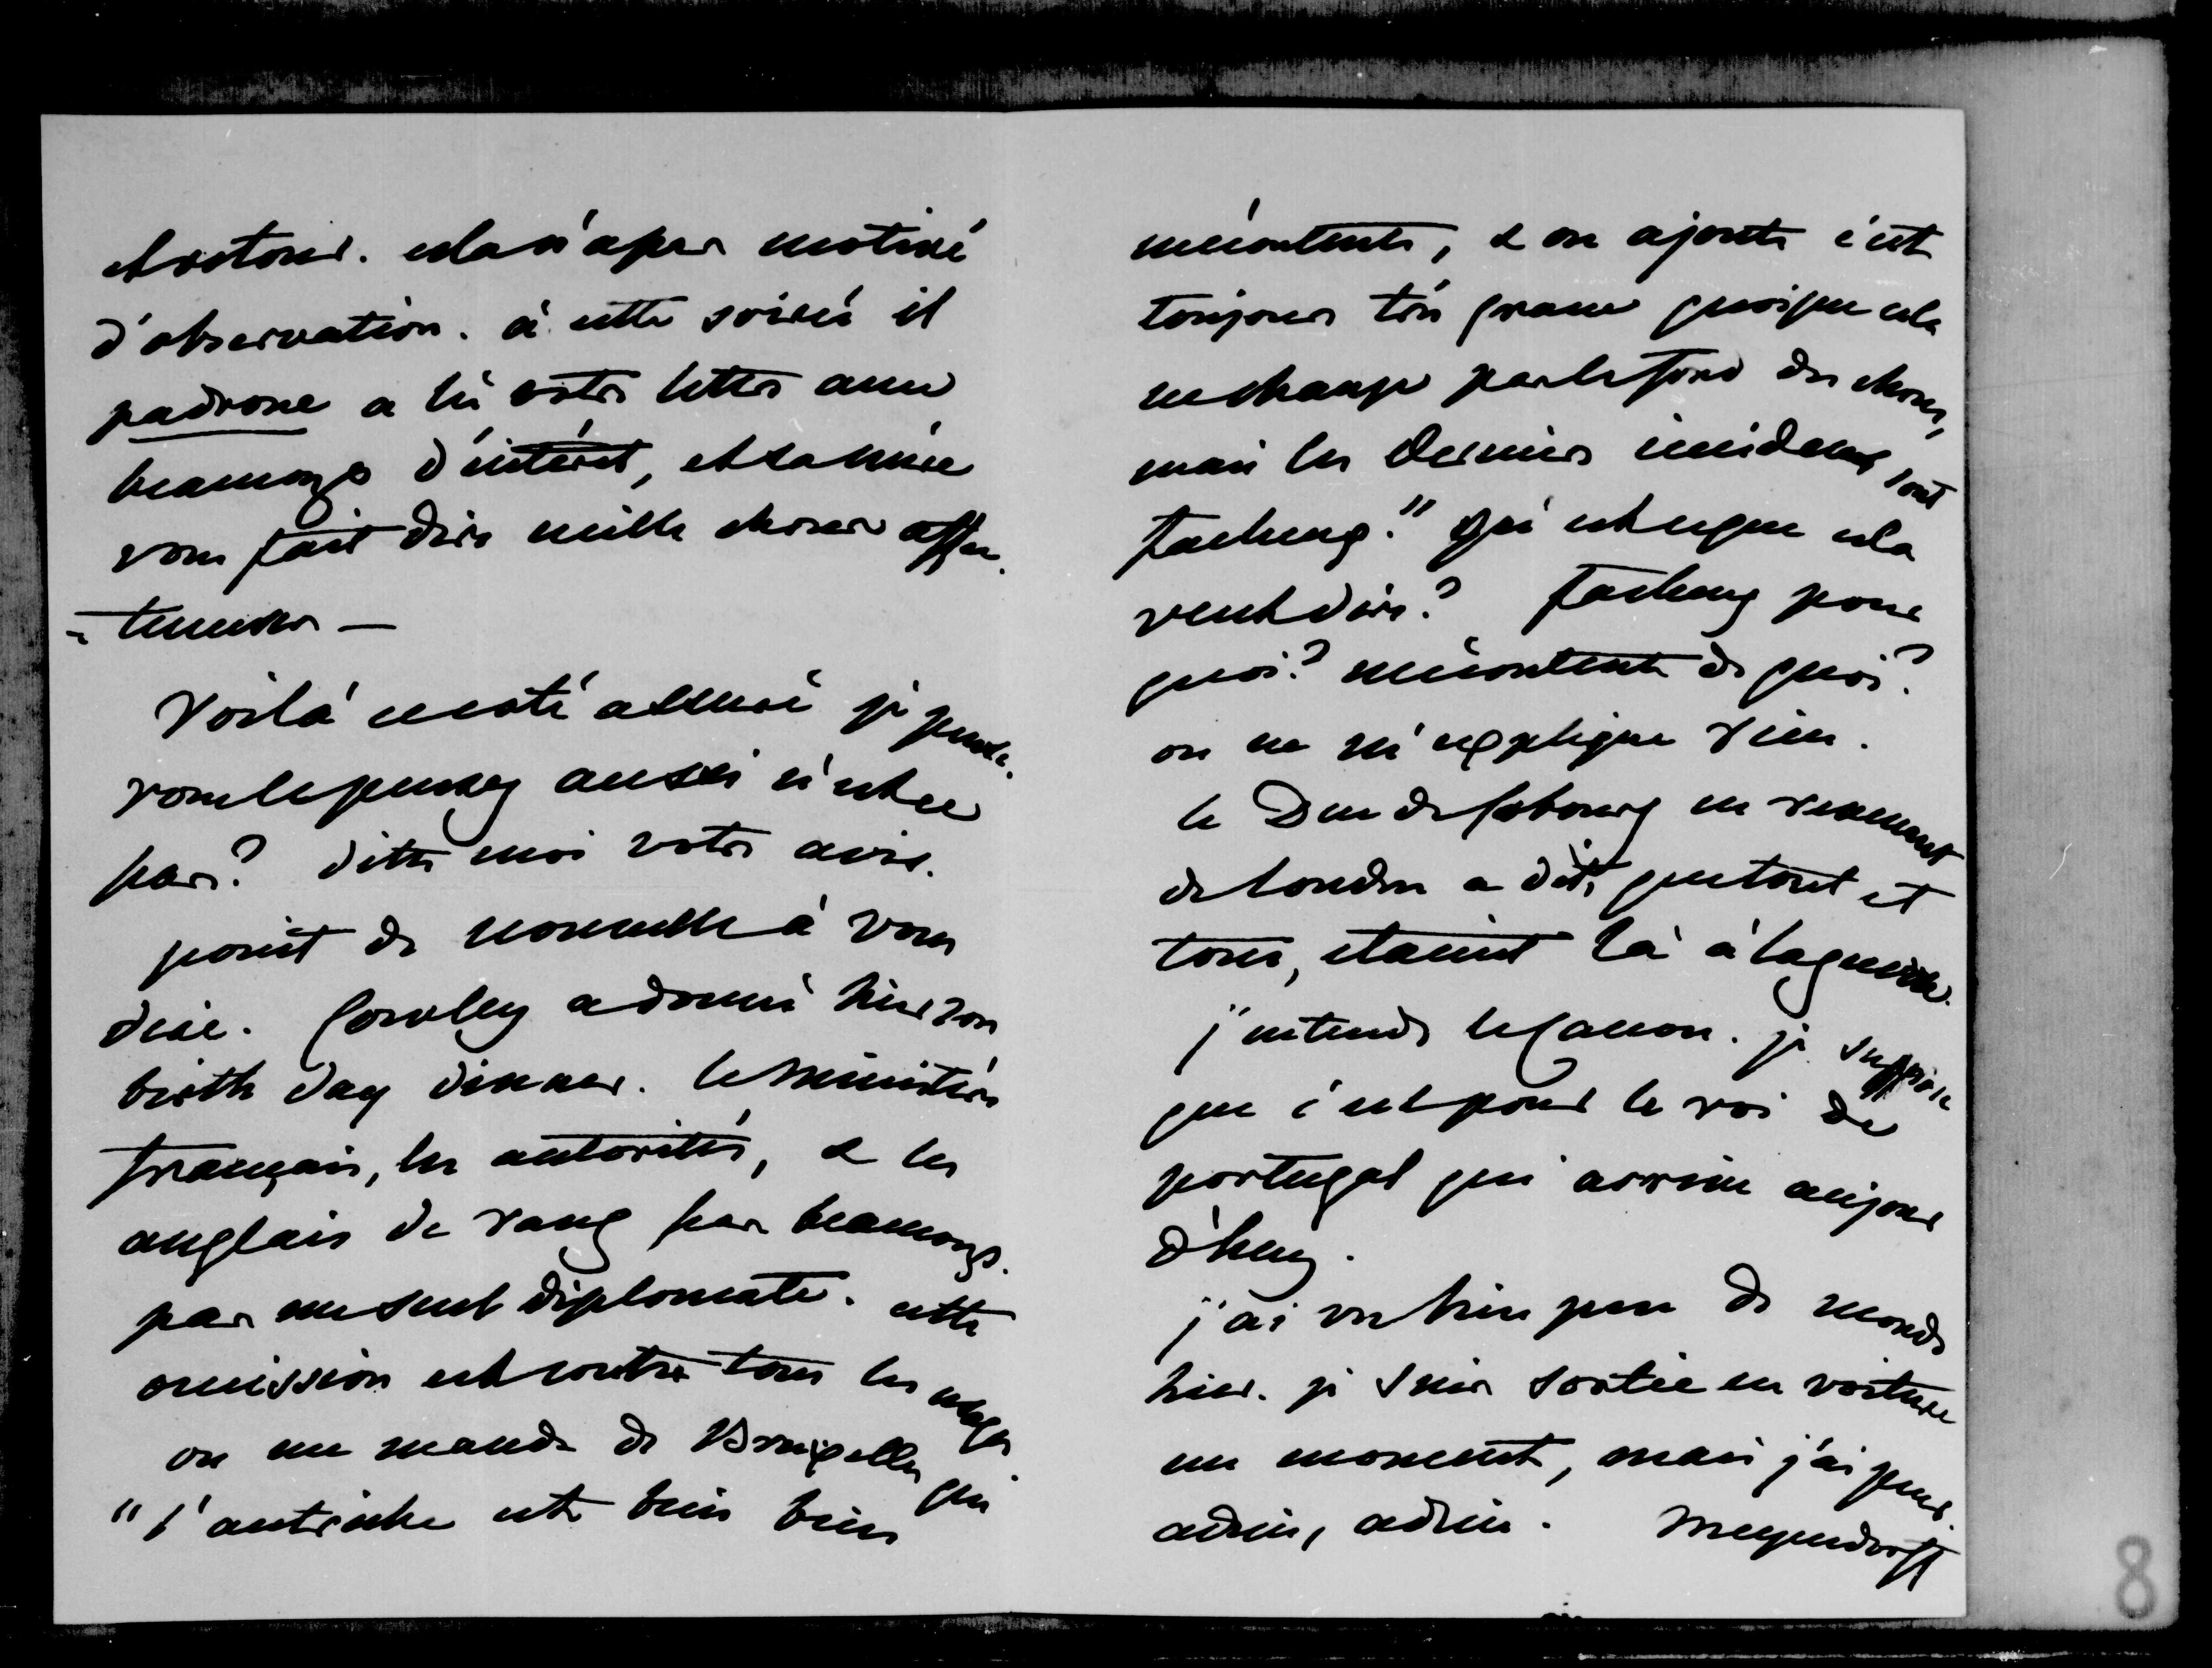 et retour. cela n'a pas motivé
d'observation. à cette soirée il
padrone a lu votre lettre avec
beaucoup d'intérêt, et sa mère
vous fait dire mille choses affec
=tueuses —
Voilà ce côté assuré je pense.
vous le pensez aussi n'est-ce
pas? dites moi votre avis.
point de nouvelle à vous
dire. Cowley a donné hier son
birth day dinner. le ministère
français, les autorités, & les
anglais de rang pas beaucoup.
pas un seul diplomate. cette
omission est contre tous les usages.
on me mande de Bruxelles que
"l'autriche est bien bien
mécontente, & on ajoute c'est
toujours très grave quoique cela
ne change pas le fond des choses,
mais les derniers incidents sont
facheux." Qu'est ce que cela
veut dire? facheux pour
quoi? mécontente de quoi?
on ne m'explique rien.
le Duc de Cobourg en revenant
de Londres a dit, que tout et
tous, étaient là à la guerre.
j'entends le canon. je suppose
que c'est pour le roi de
portugal qui arrive aujour
d'huy.
j'ai vu bien peu de monde
hier. je suis sortie en voiture
un moment, mais j'ai peur.
adieu, adieu. Meyendorff
8